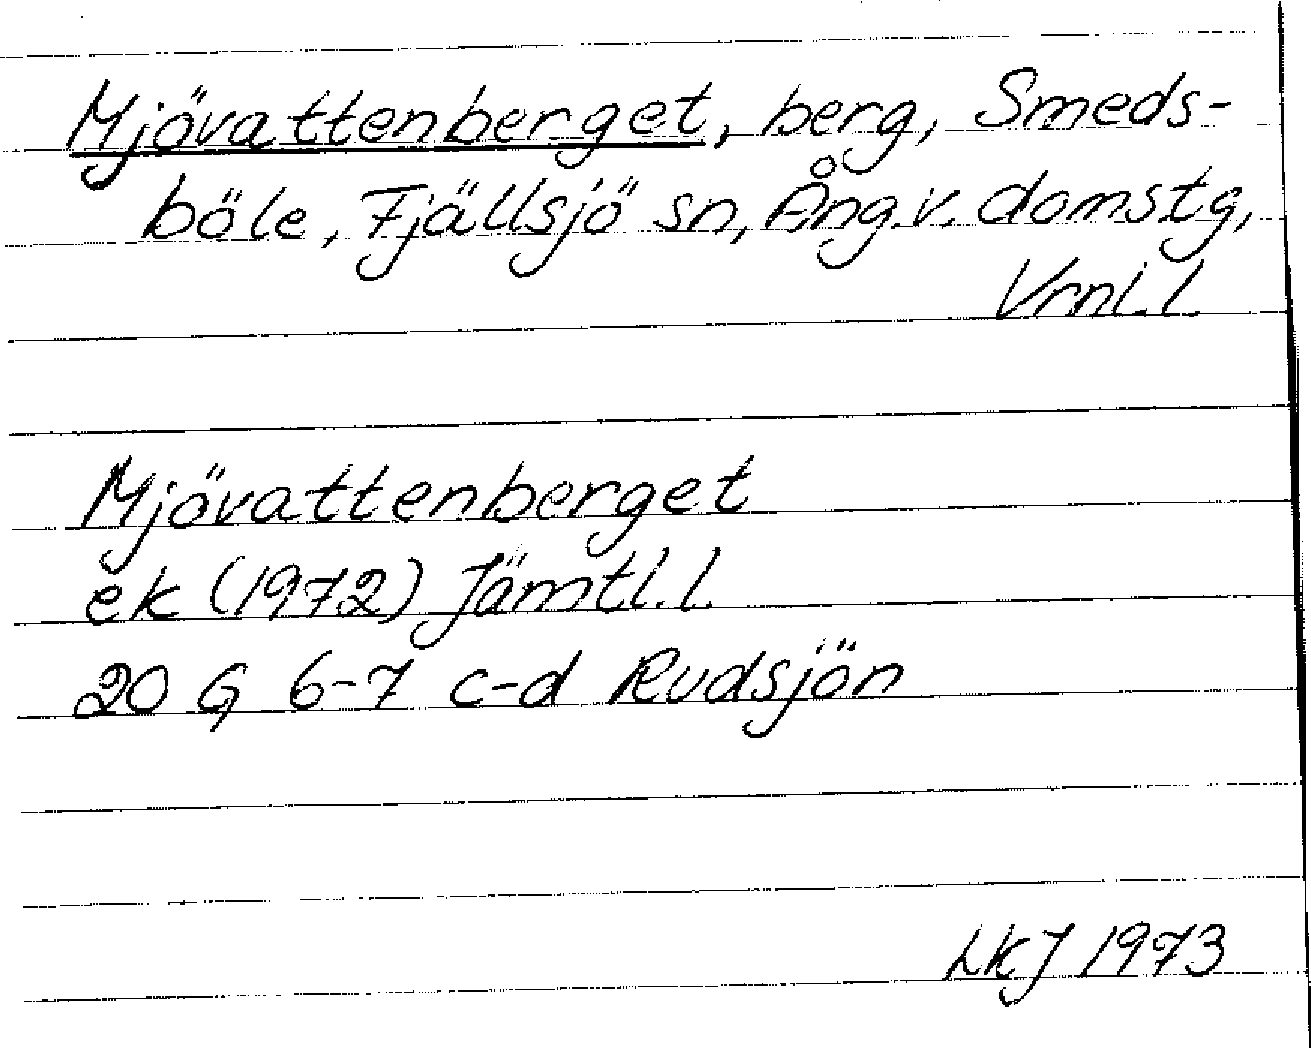 Mjövattenberget, berg, Smeds-
böle, Fjällsjö sn, Ång.v. domstg,
Vrnl.l.
Mjövattenberget
ek (1972) Jämtl.l.
20 G 6-7 c-d Rudsjön
LKJ 1973